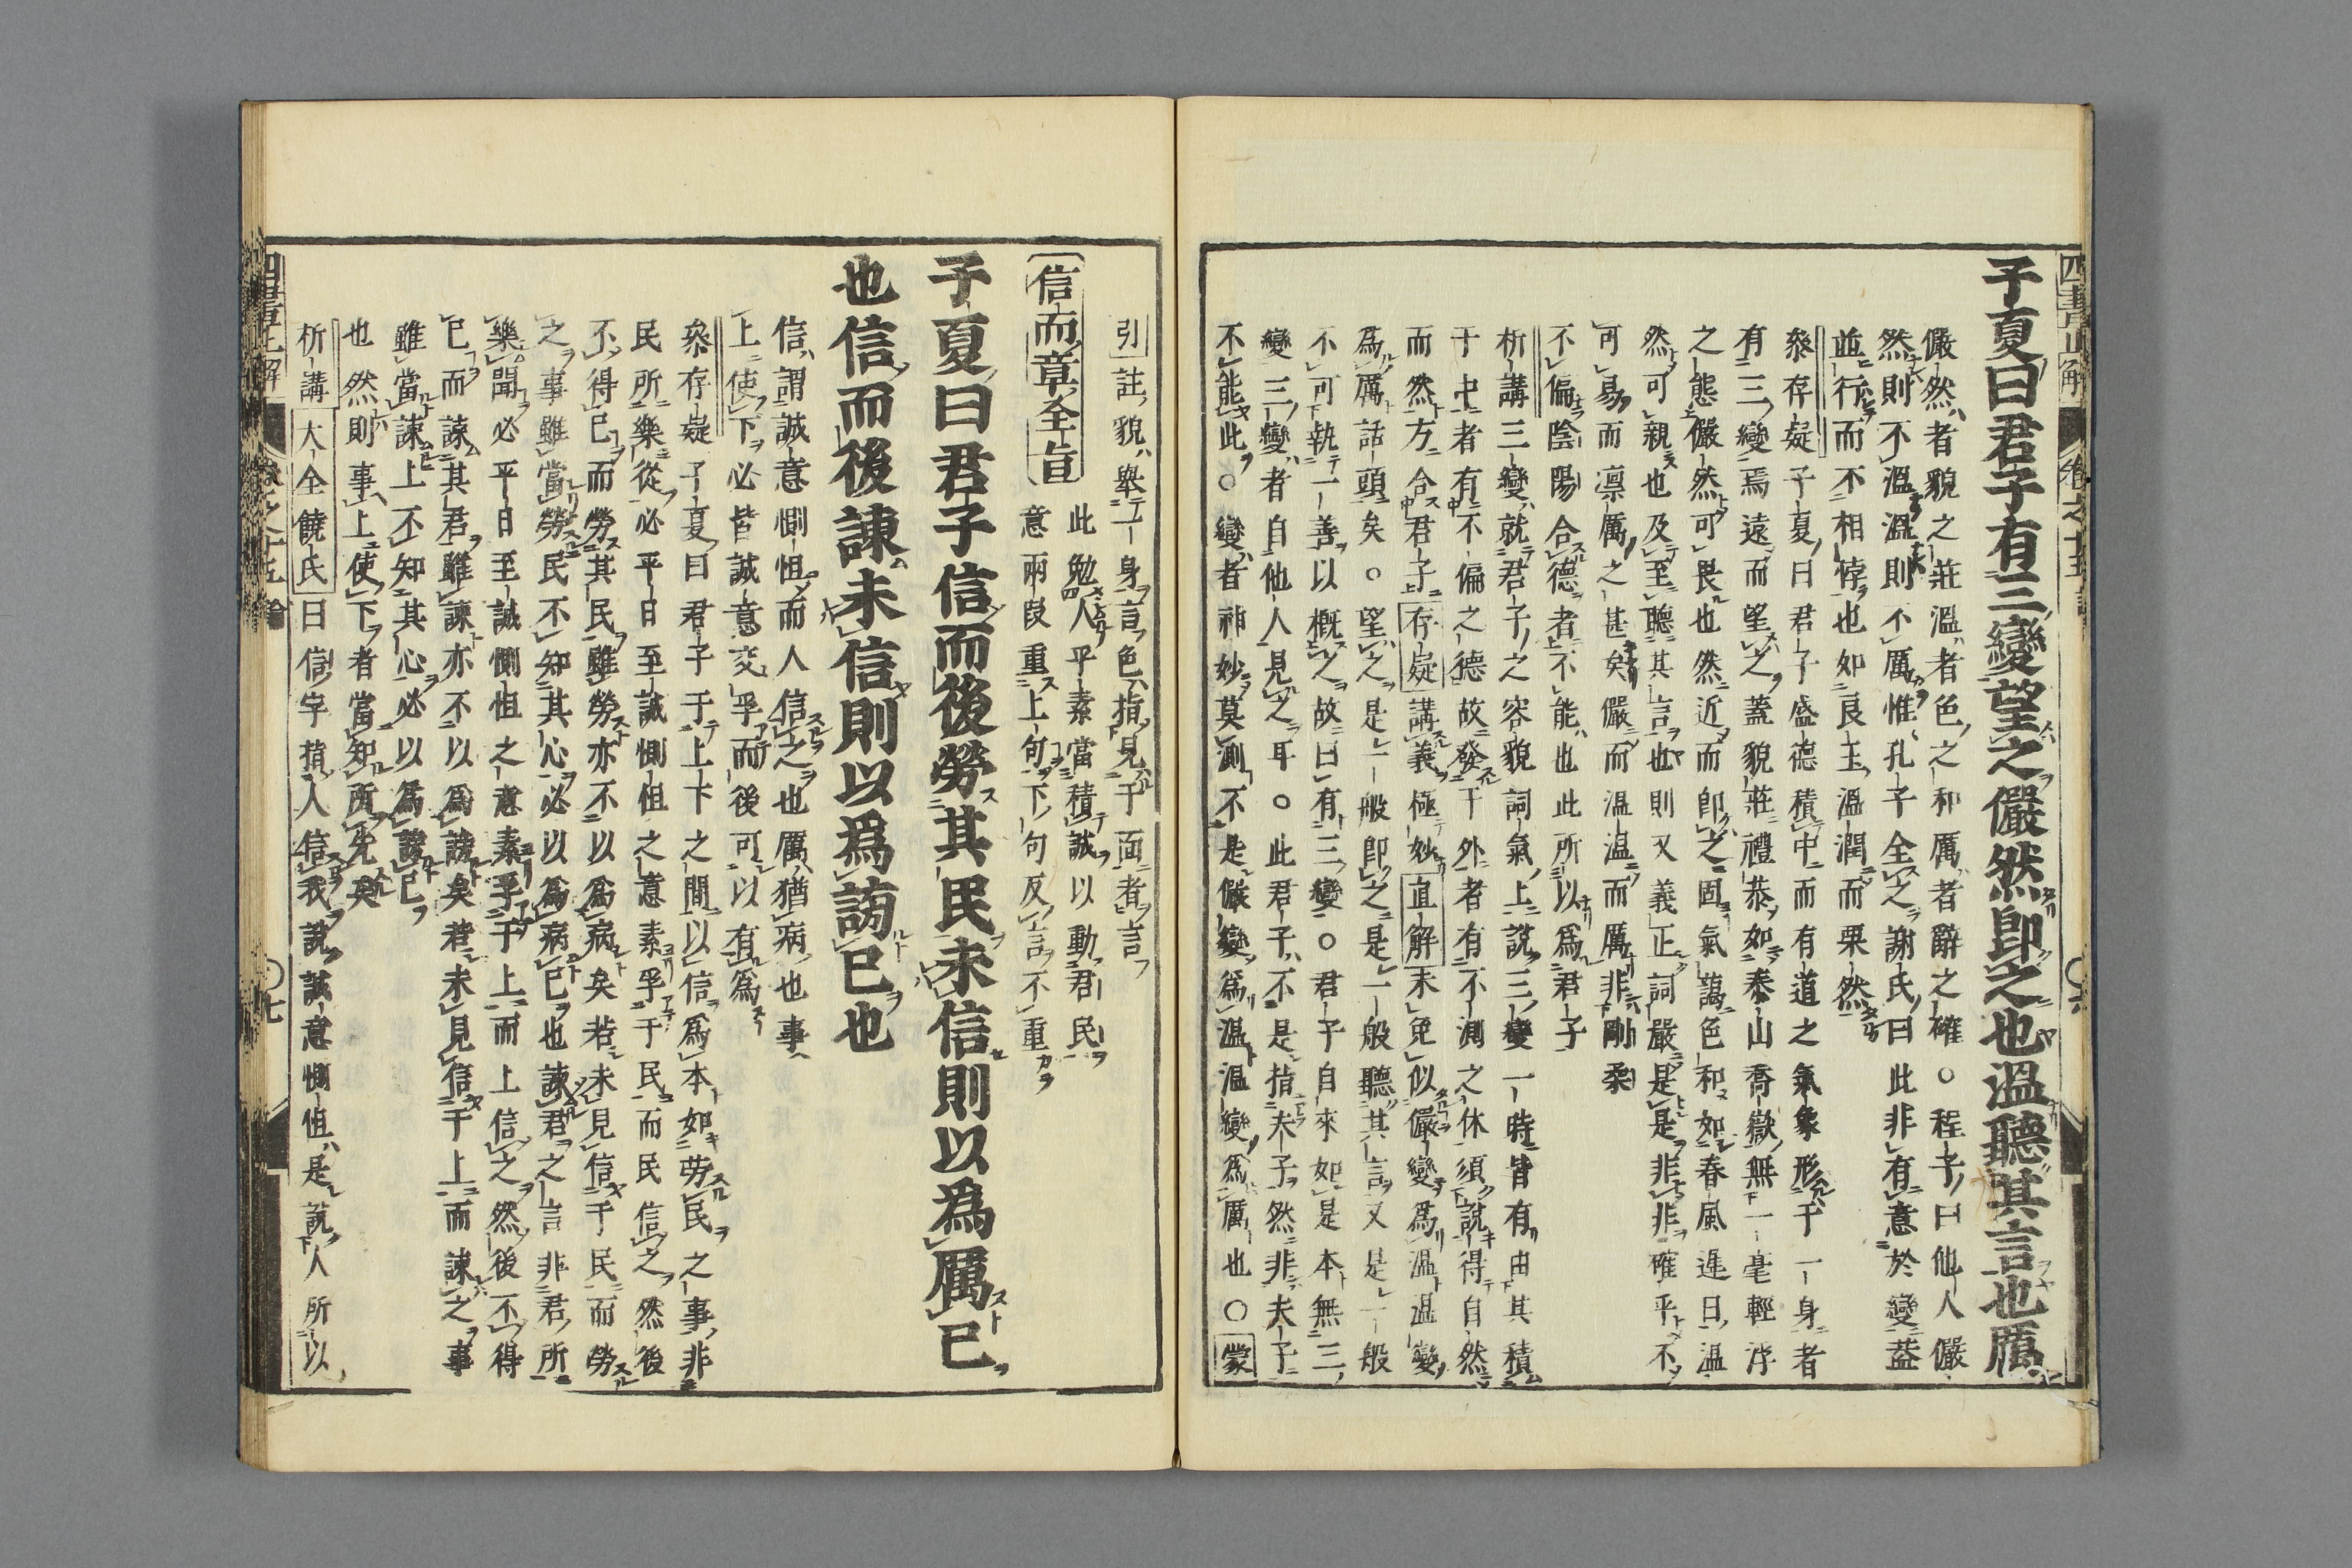 子夏曰君子有三變望之儼然即之也溫聽其言也厲
儼然者貌之莊溫者色之和厲者辭之確○程子曰他人儼
然則不溫溫則不厲惟孔子全之謝氏曰此非有意於變蓋
並行而不相悖也如良玉溫潤而栗然
叅存疑子夏曰君子盛德積中而有道之氣象形于一身者
有三變焉遠而望之蓋貌莊禮恭如泰山喬嶽無一毫輕浮
之態儼然可畏也然近而即之固氣藹色和如春風遲日溫
然可親也及至聽其言也則又義正詞嚴是是非非確乎不
可易而凛厲之甚矣儼而溫溫而厲非剛柔
不偏陰陽合德者不能也此所以為君子
析講三變就君子之容貌詞氣上說三變一時皆有由其積
于中者有不偏之德故發于外者有不測之休須說得自然
而然方合君子存疑講義極妙直解未免似儼變為溫溫變
為厲話頭矣○望之是一般即之是一般聽其言又是一般
不可執一善以概之故曰有三變○君子自來如是本無三
變三變者自他人見之耳○此君子不是指夫子然非夫子
不能此○變者神妙莫測不是儼變為溫溫變為厲也○蒙
引註貌舉一身言色指見于面者言
信而章全旨
此勉人平素當積誠以動君民
意兩段重上句下句反言不重
子夏曰君子信而後勞其民未信則以為厲已
也信而後諫未信則以為謗已也
信謂誠意惻怛而人信之也厲猶病也事
上使下必皆誠意交孚而後可以有為
叅存疑子夏曰君子于上下之間以信為本如勞民之事非
民所樂從必平日至誠惻怛之意素孚于民而民信之然後
不得已而勞其民雖勞亦不以為病矣若未見信于民而勞
之事雖當勞民不知其心必以為病已也諫君之言非君所
樂聞必平日至誠惻怛之意素孚于上而上信之然後不得
已而諫其君雖諫亦不以為謗矣若未見信于上而諫之事
雖當諫上不知其心必以為謗已
也然則事上使下者當知所先矣
析講大全饒氏曰信字指人信我說誠意惻怛是說人所以
四書正解
卷之十五論
○七